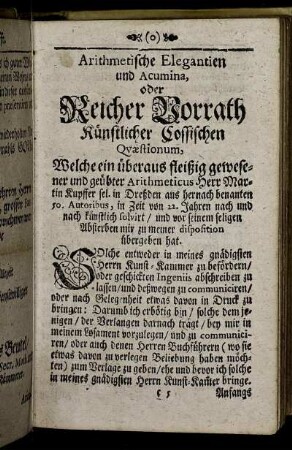 (o)
Arithmetische Elegantien
und Acumina,
oder
Reicher Vorrath
Künstlicher Cossischen
Qvæstionum,
Welche ein überaus fleißig gewese-
ner und geübter Arithmeticus Herr Mar-
tin Kupffer sel. in Dreßden aus hernach benanten
50. Autoribus, in Zeit von 22. Jahren nach und
nach künstlich solvirt / und vor seinem seligen
Absterben mir zu meiner disposition
übergeben hat.
SOlche entweder in meines gnädigsten
Herrn Kunst-Kammer zu befördern/
oder geschickten Ingeniis abschreiben zu
lassen/und deßwegen zu communiciren/
oder nach Gelegenheit etwas davon in Druck zu
bringen: Darumb ich erbötig bin/ solche dem je-
nigen / der Verlangen darnach trägt / bey mir in
meinem Losament vorzulegen/ und zu communici-
ren/ oder auch denen Herren Buchführern ( wo sie
etwas davon zu verlegen Beliebung haben möch-
ten) zum Verlage zu geben/ehe und bevor ich solche
in meines gnädigsten Herrn Kunst-Kam̃er bringe.
Anfangs